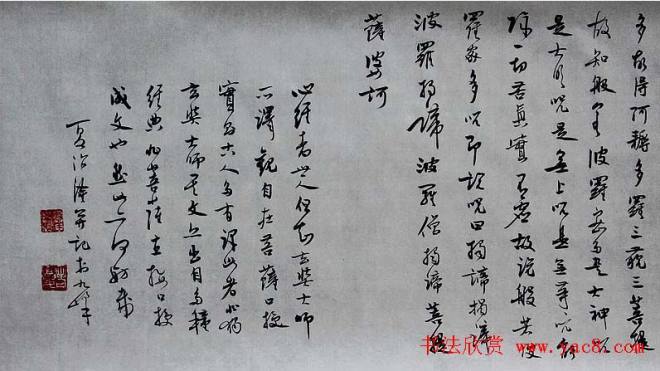 多故得阿耨多羅三藐三菩提
故知般若波羅蜜多是大神咒
是大明咒是無上咒是無等咒能
除一切苦真實不虛故說般若波
羅蜜多咒即說咒曰揭諦揭諦
波羅揭諦波羅僧揭諦菩提
薩婆訶
心經者世人但知玄奘大師
所譯觀自在菩薩口授
實為古人多有譯此者非獨
玄奘大師其文亦出自多種
經典
成文也
并記於
书法欣赏 www.yac8.com